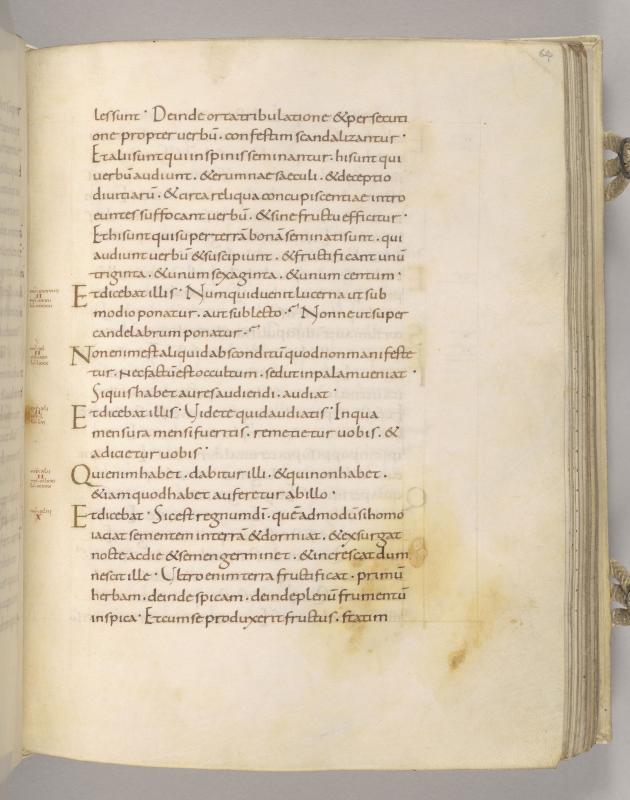 64
les sunt · Deinde orta tribulatione & persecuti
one propter verbū · confestim scandalizantur ·
Et alii sunt qui in spinis seminantur · hi sunt qui
verbū audiunt · & erumnae saeculi · & deceptio
divitiarū · & circa reliqua concupiscentiae intro
euntes suffocant verbū · & sine fructu efficitur ·
Et hi sunt qui super terrā bonā seminati sunt · qui
audiunt verbū & suscipiunt · & fructificant unū
triginta · & unum sexaginta · & unum centum ·
Et dicebat illis · Numquid venit lucerna ut sub
modio ponatur · aut sub lecto · Nonne ut super
candelabrum ponatur ·
Non enim est aliquid absconditū quod non manifeste
tur · nec factū est occultum · sed ut in palam veniat ·
Si quis habet aures audiendi · audiat ·
Et dicebat illis · Videte quid audiatis · In qua
mensura mensi fueritis · remetietur vobis · &
adicietur vobis ·
Qui enim habet · dabitur illi · & qui non habet ·
& iam quod habet auferetur ab illo ·
Et dicebat · Sic est regnum dī · quē admodū si homo
iaciat sementem in terrā & dormiat · & exsurgat
nocte ac die & semen germinet · & increscat dum
nescit ille · Ultro enim terra fructificat · primū
herbam · deinde spicam · deinde plenū frumentū
in spica · Et cum se produxerit fructus · statim